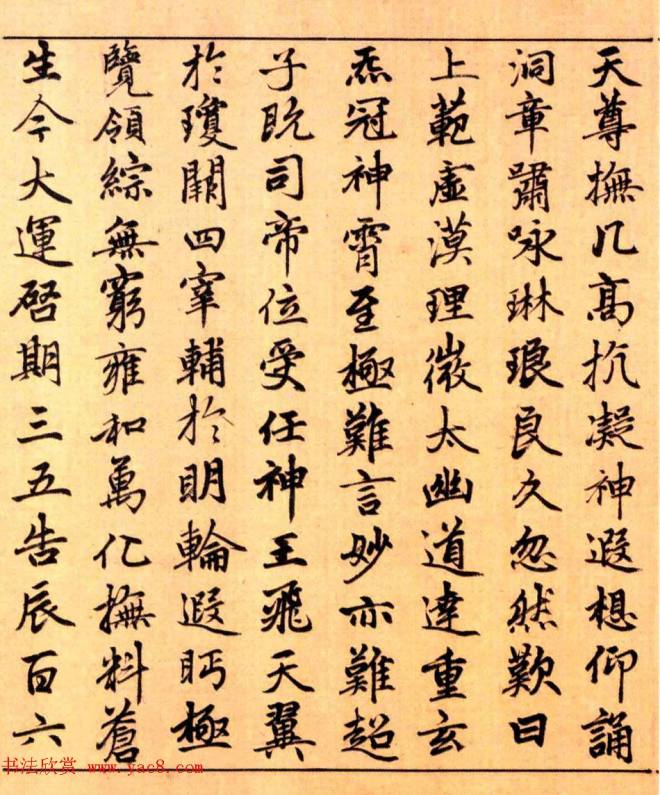 天尊撫几高抗凝神遐想仰誦
洞章嘯咏琳琅良久忽然歎曰
上範虛漠理微太幽道達重玄
炁冠神霄至極難言妙亦難超
子既司帝位受任神王飛天翼
於瓊闕四宰輔於明輪遐眄極
覽領綜無窮雍和萬化撫料蒼
生今大運啓期三五告辰百六
书法欣赏 www.yac8.com